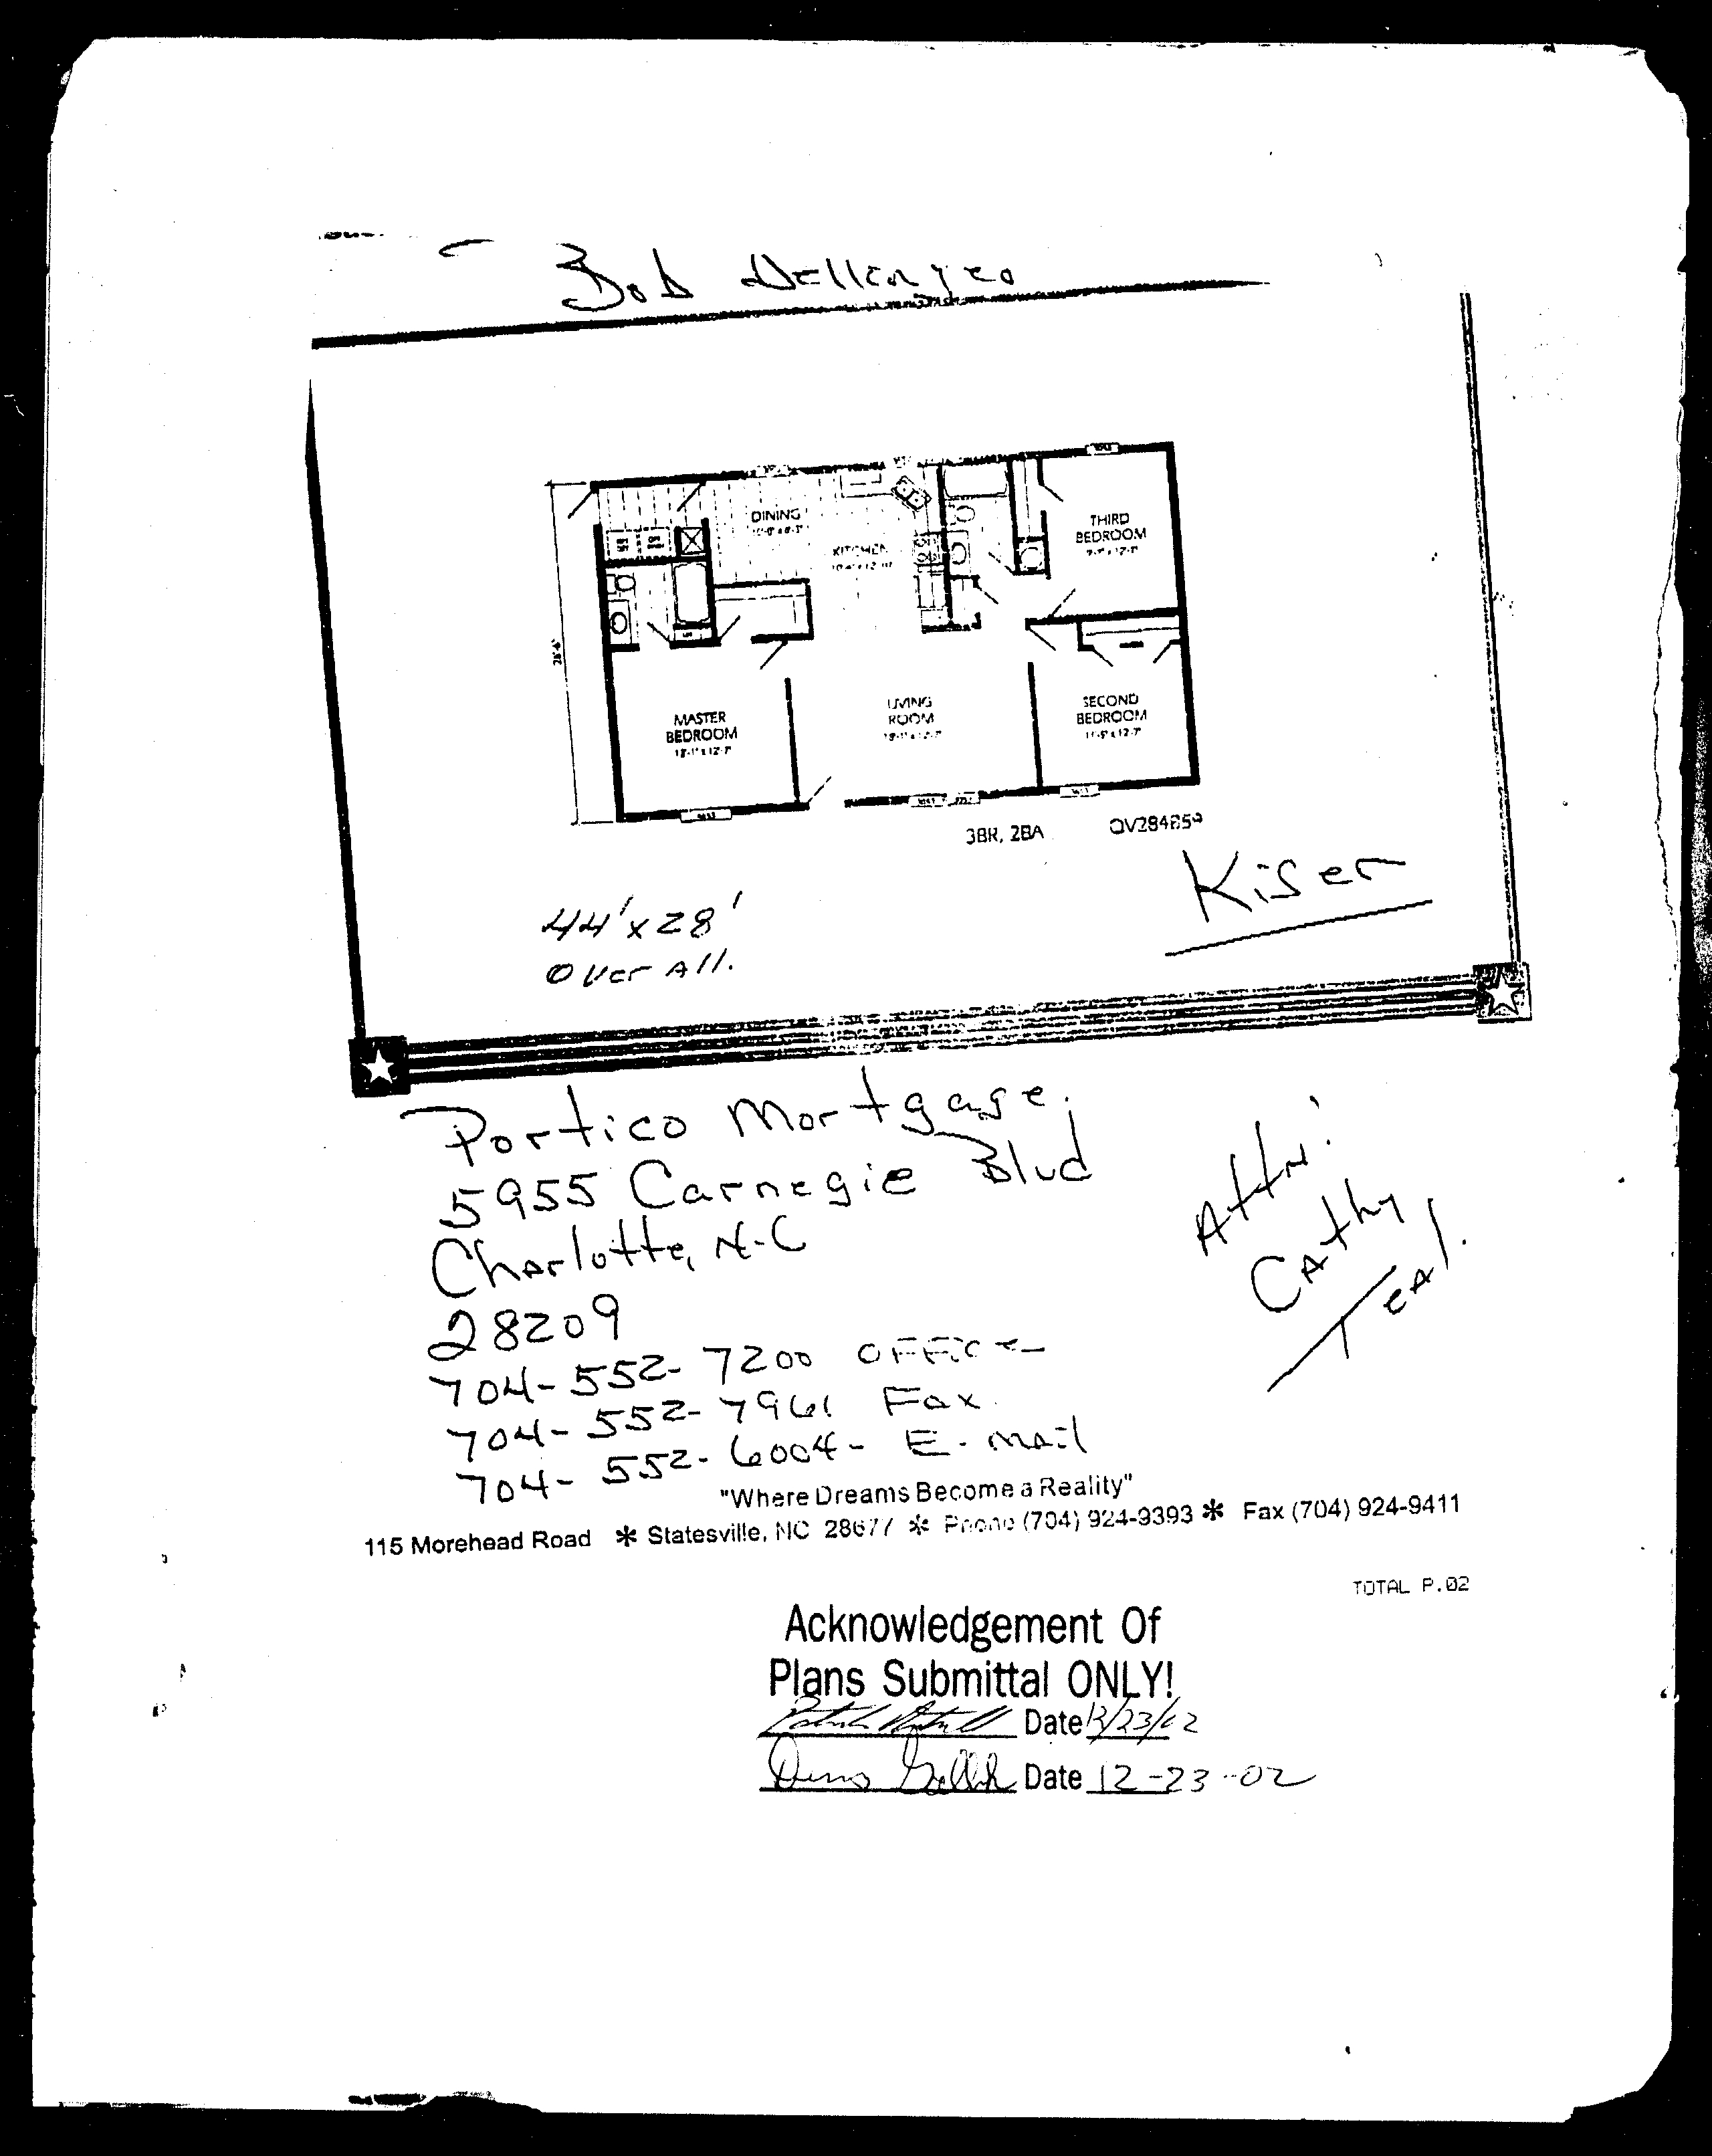 Bob
DINING
KITCHEN
THIRD
BEDROOM
MASTER
BEDROOM
LIVING
ROOM
SECOND
BEDROOM
3BR, 2BA
Kiser
44' x 28'
Over All.
Portico Mortgage.
5955 Carnegie Blvd
Charlotte, N.C
28209
Attn:
Cathy
Teal.
704-552-7200 OFFICE
704-552-7961 Fax.
704-552-6004- E-mail
"Where Dreams Become a Reality"
115 Morehead Road * Statesville, NC 28677 * Phone (704) 924-9393 * Fax (704) 924-9411
TOTAL P.02
Acknowledgement Of
Plans Submittal ONLY!
Date 12/23/02
Date 12-23-02